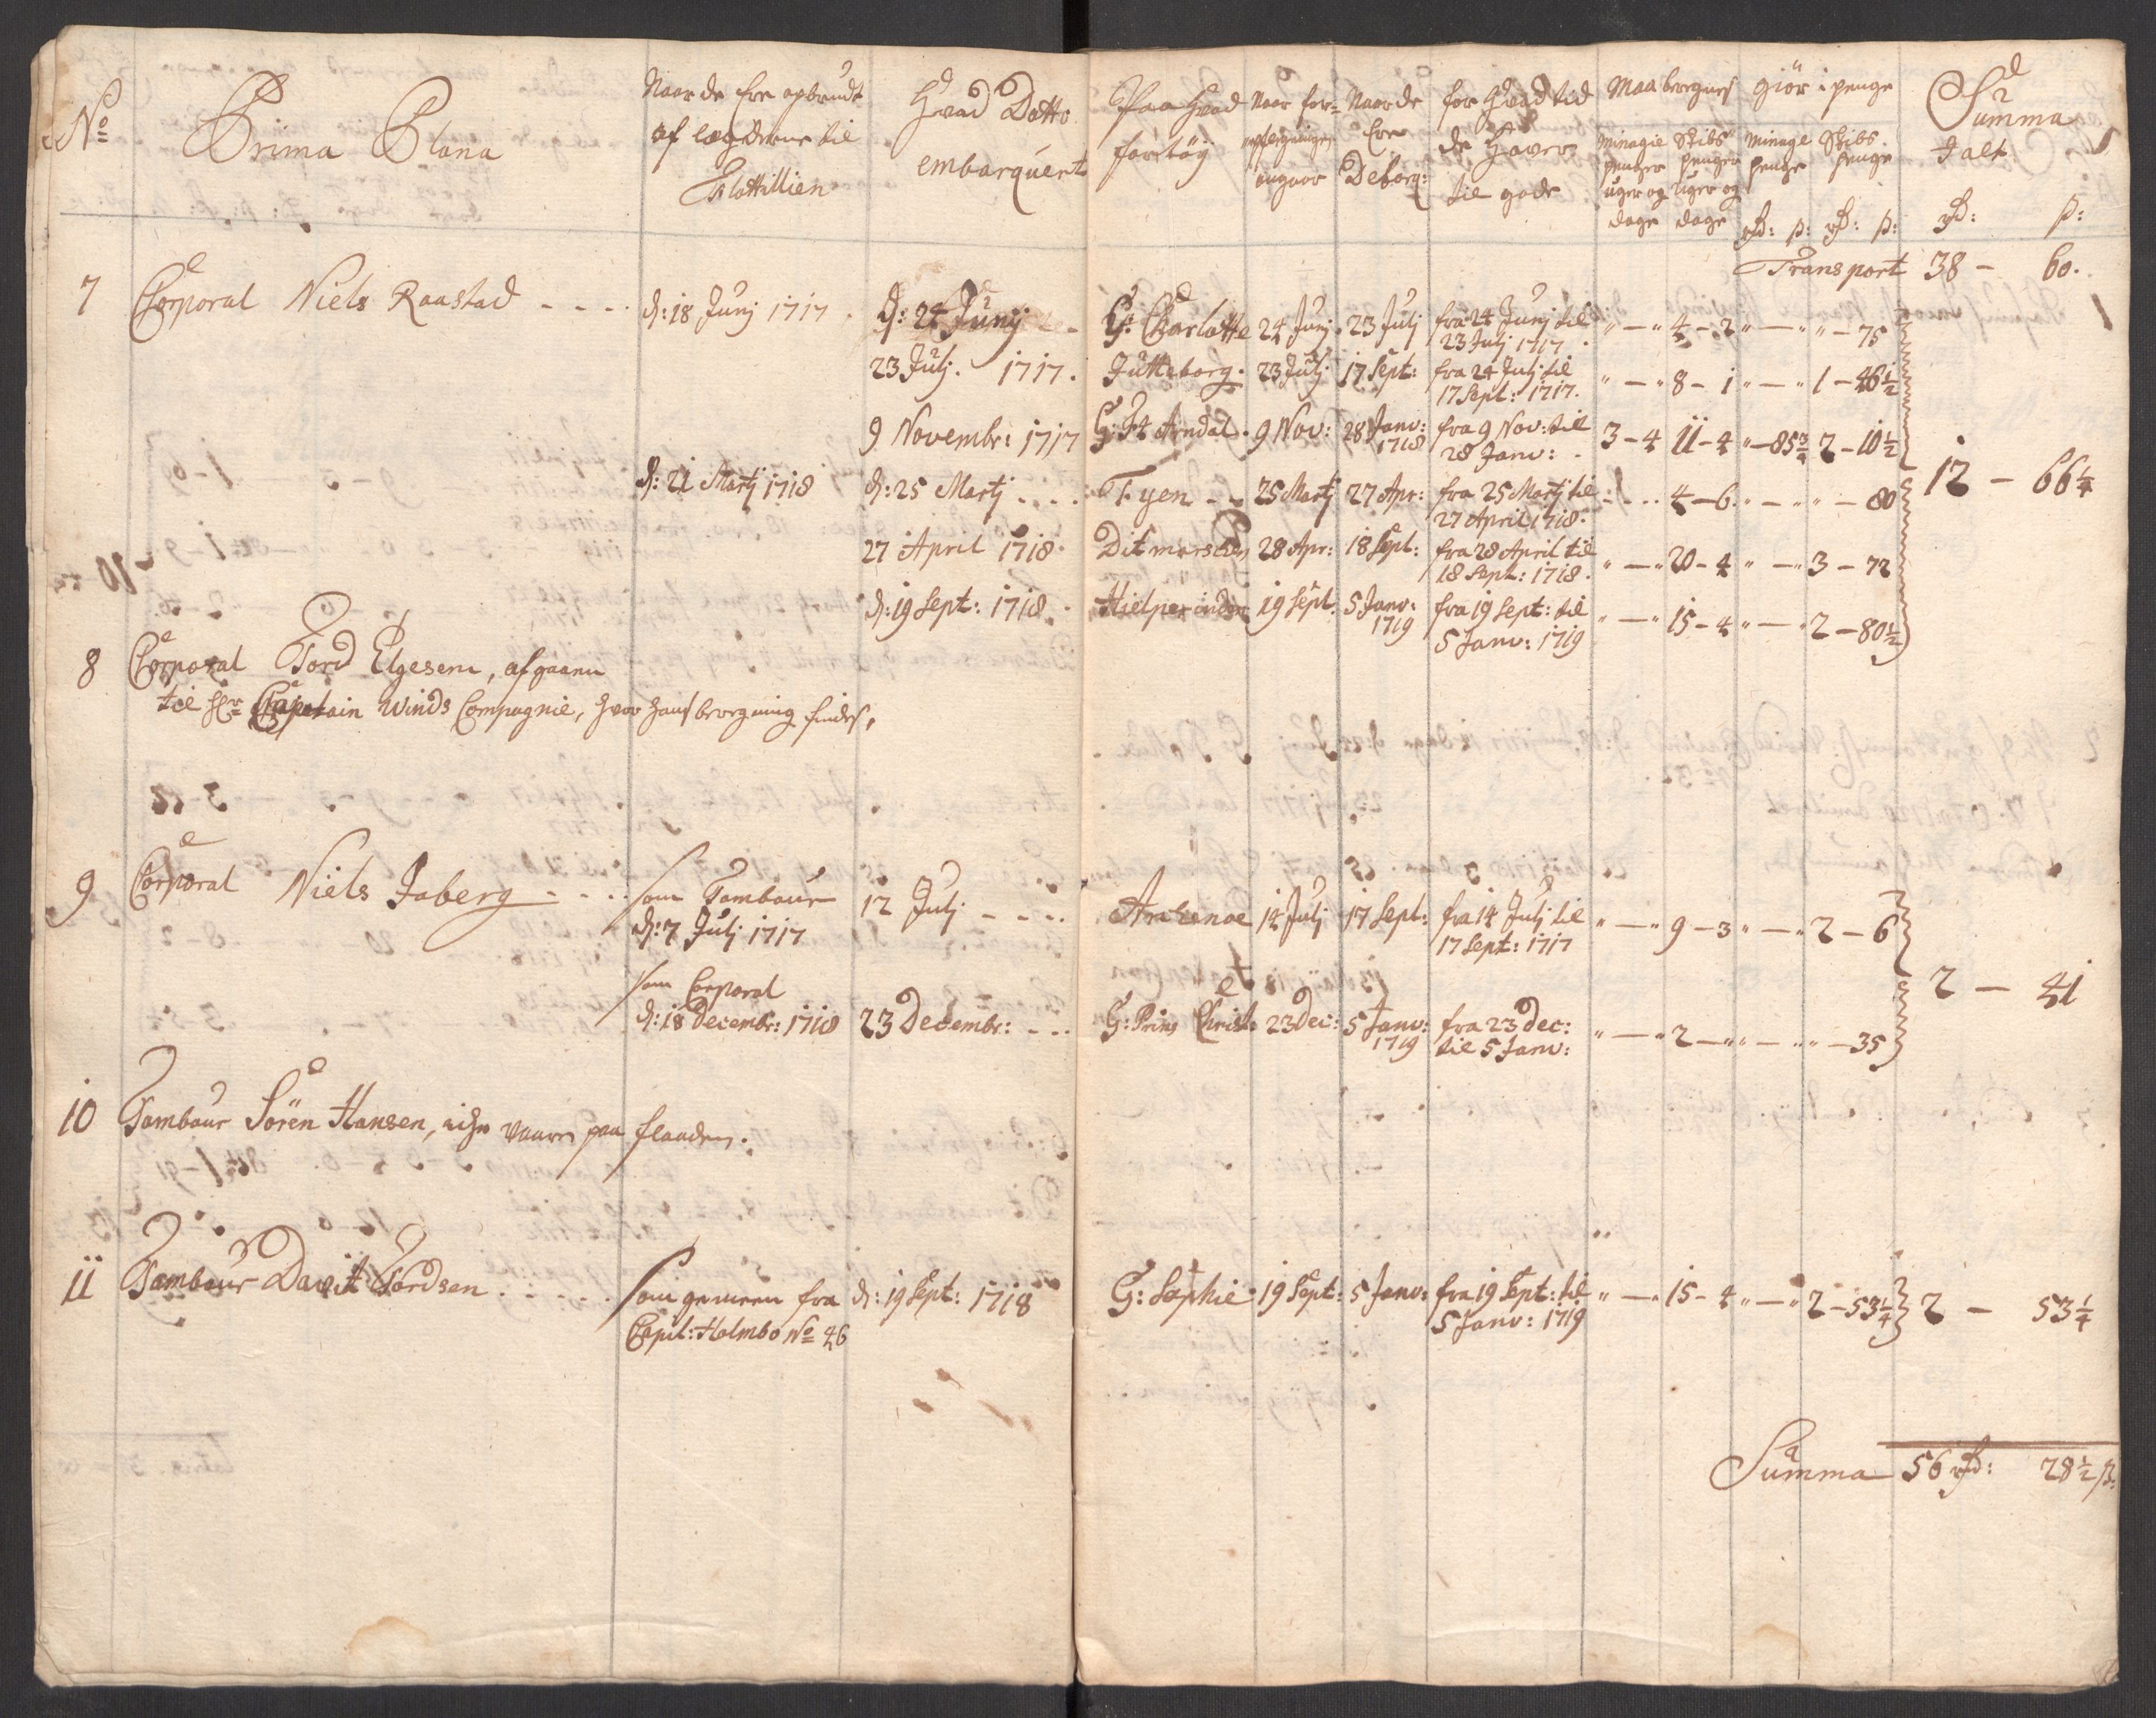 No Prima Plana
Naar de ere opbrudt
af lægderne til
Flottillien
Hvad Datto
embarquert
Paa Hvad
fartöÿ
Naar for-
pflegningen
angaar
Naar de
Ere
Debarq:
for Hvad tid
de Haver
til gode
Maa beregnes
Minagie penger uger og dage
Skibs penger Uger og dage
giör i penge
Minage penge rd: ß:
Skibs penge rd: ß:
Summa
I alt
rd: ß:
Transport 38 - 60.
7 Corporal Niels Raastad - - - d: 18 Junj 1717. d: 24 Junij G: Charlotte 24 Junj. 23 Julj fra 24 Junj til 23 Julj 1717. " - " 4 - 2 " - " " - 75
23 Julj. 1717. Jütteborg. 23 Julj 17 Sept: fra 24 Julj til 17 Sept: 1717. " - " 8 - 1 " - " 1 - 46½
9 Novembr: 1717 G: Fr Arndal. 9 Nov: 28 Janv: 1718 fra 9 Nov: til 28 Janv: 3 - 4 11 - 4 " - 85¾ 2 - 10½
d: 21 Martj 1718 d: 25 Martj - - - Fyen - - 25 Martj 27 Apr: fra 25 Martj til 27 April 1718. 4 - 6 " - " " - 80
12 - 66¼
27 April 1718. Ditmarschen 28 Apr: 18 Sept: fra 28 April til 18 Sept: 1718. " - " 20 - 4 " - " 3 - 72
d: 19 Sept: 1718. Hielperinden 19 Sept. 5 Janv: 1719 fra 19 Sept: til 5 Janv: 1719 " - " 15 - 4 " - " 2 - 80½
8 Corporal Tord Elgesem, afgaaen
til Hr Capetain Winds Compagnie, hvor hans beregning findes,
9 Corporal Niels Jaberg - - - som Tambour d: 7 Julj 1717 12 Julj - - - Arcenoe 14 Julj 17 Sept: fra 14 Julj til 17 Sept: 1717 " - " 9 - 3 " - " 2 - 6
2 - 41
som Corporal
d: 18 Decembr: 1718 23 Decembr: - - - G: Prins Christ. 23 Dec: 5 Janv: 1719 fra 23 Dec: til 5 Janv: " - " 2 - " " - " " - 35
10 Tambour Sören Hansen, iche vaaren paa flaaden.
11 Tambour Davit Tordsen - - - Som gemeen fra Capit: Holmbo No 46 d: 19 Sept: 1718 G: Sophie. 19 Sept: 5 Janv: fra 19 Sept: til 5 Janv: 1719 " - " 15 - 4 " - " 2 - 53¼ 2 - 53¼
Summa 56 rd: 28½ ß: